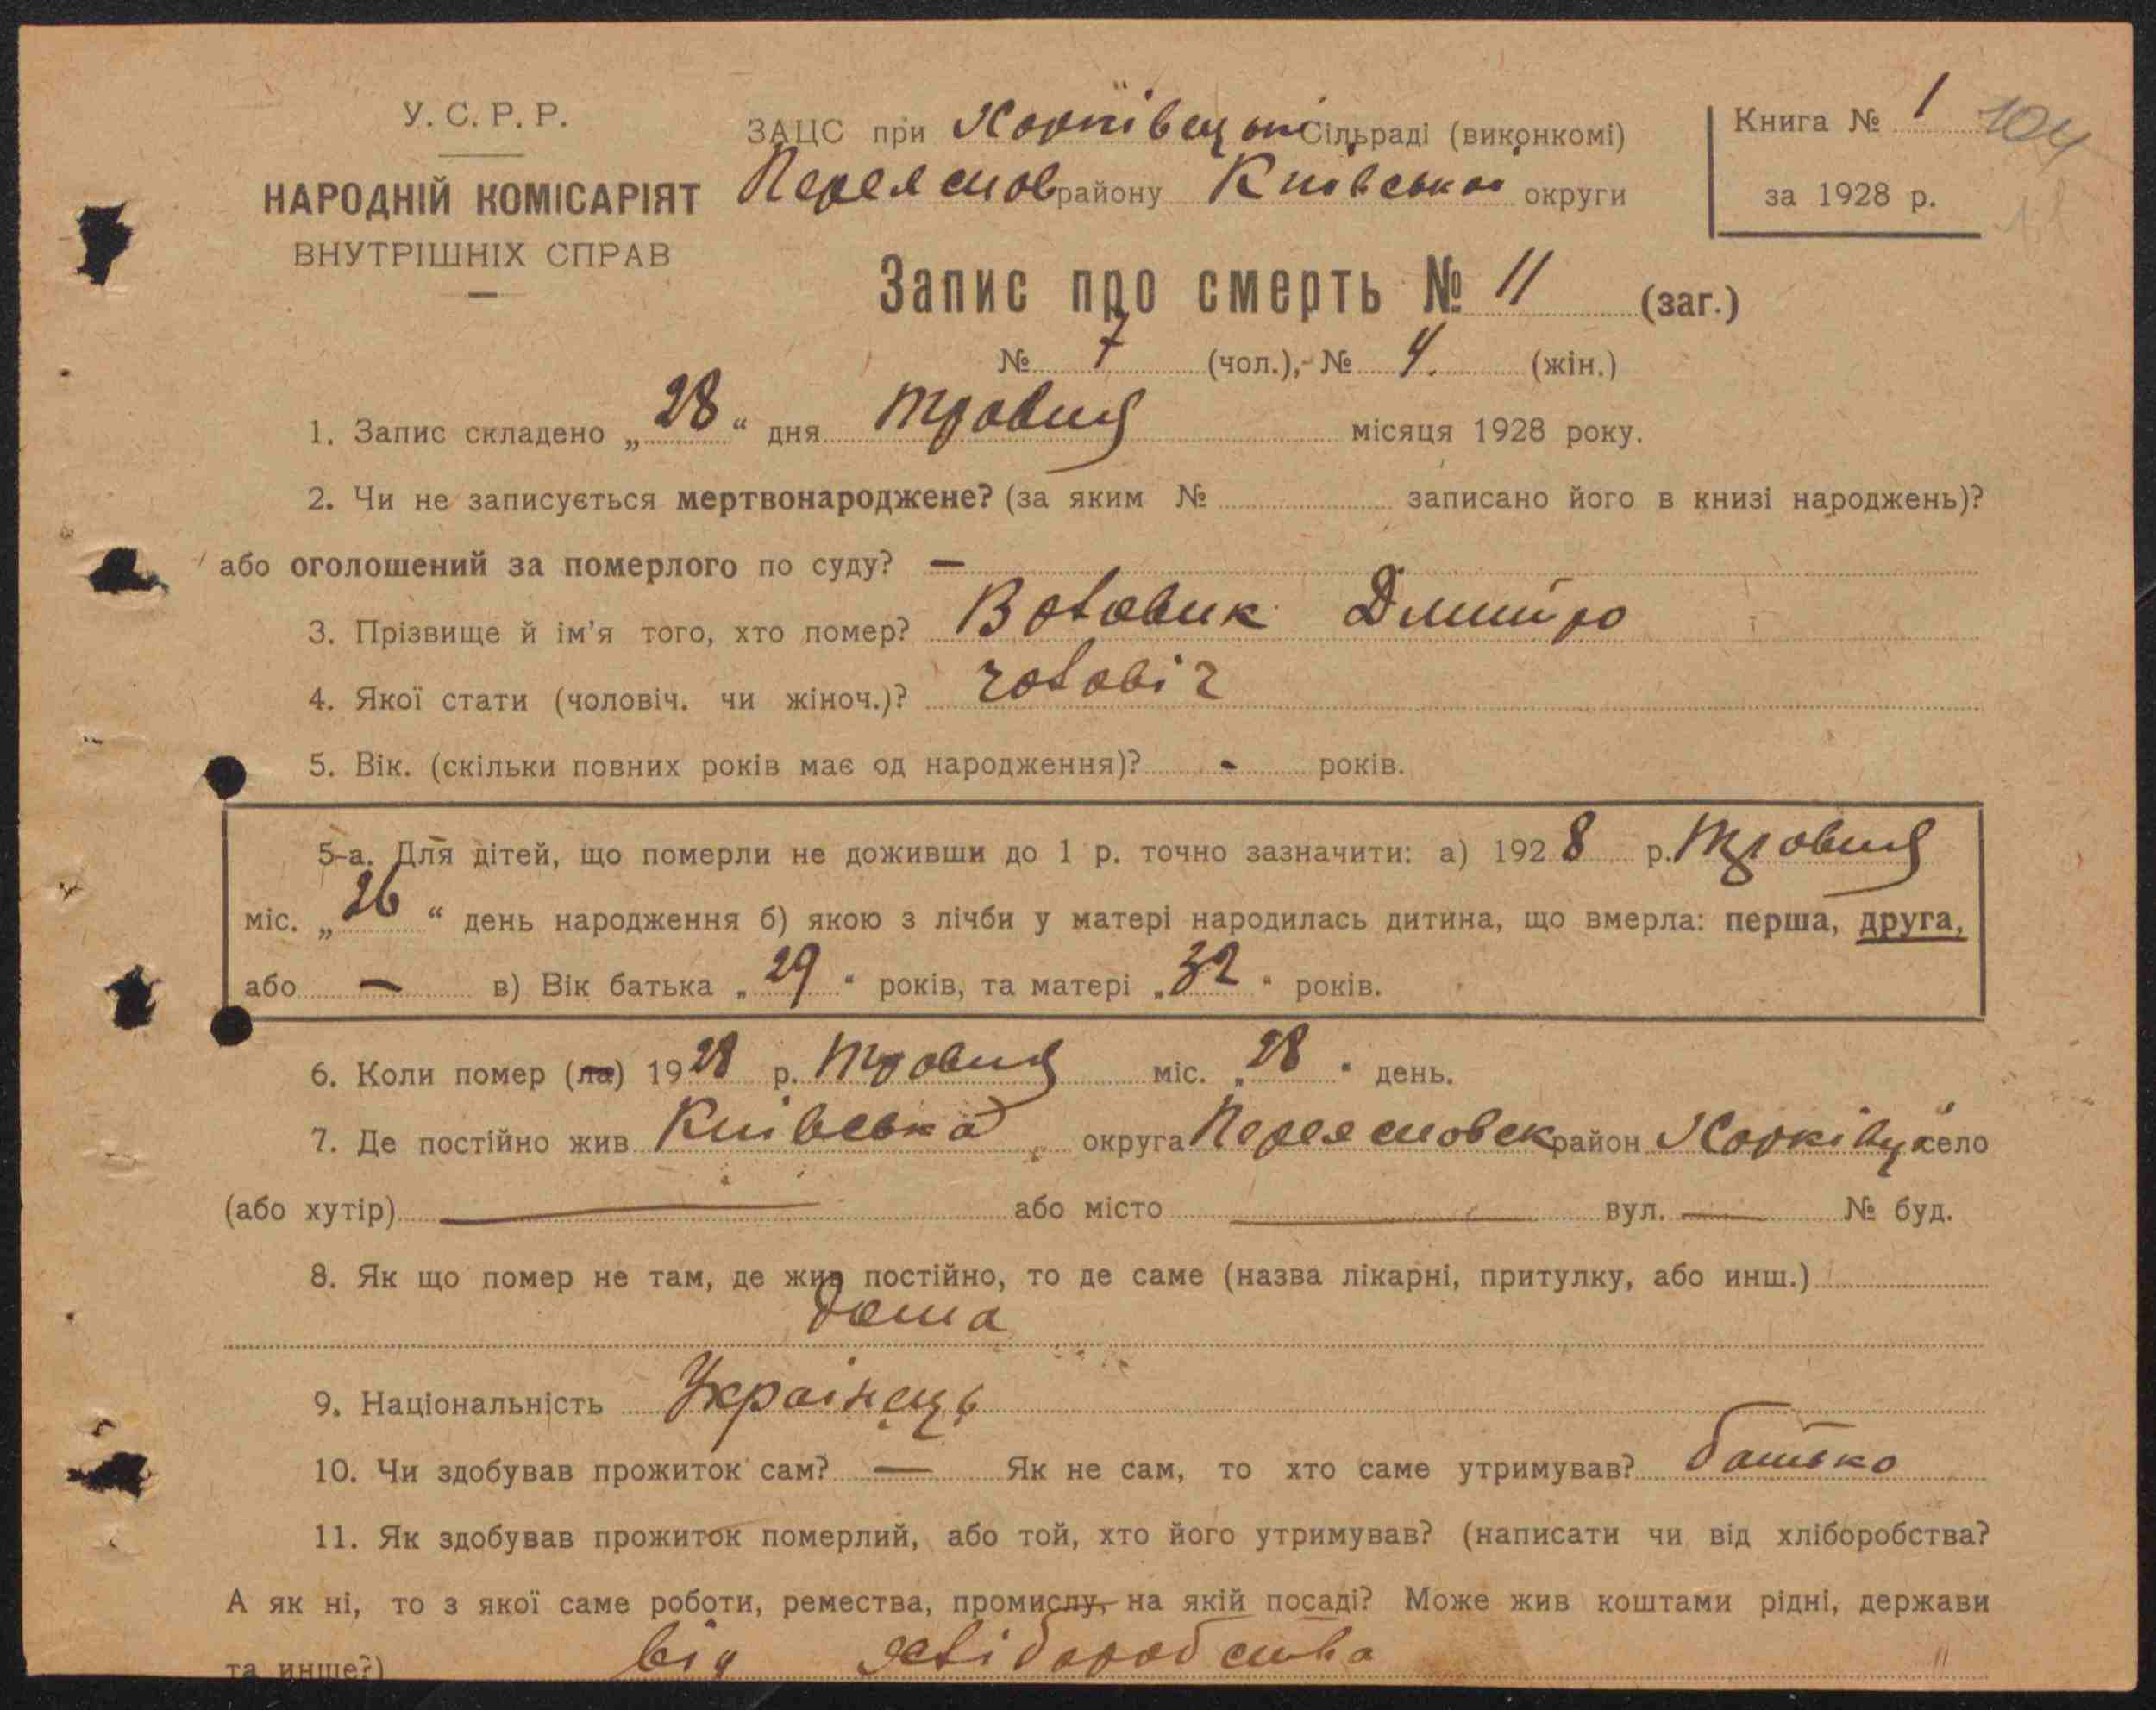 У. С. Р. Р.
НАРОДНІЙ КОМІСАРІЯТ
ВНУТРІШНІХ СПРАВ
ЗАЦС при Харківецькі Сільраді (виконкомі)
Переяслов району Київської округи
Книга № 1 104
за 1928 р.
Запис про смерть № 11 (заг.)
№ 7 (чол.),- № 4. (жін.)
1. Запис складено „28“ дня травня місяця 1928 року.
2. Чи не записується мертвонароджене? (за яким № записано його в книзі народжень)?
або оголошений за померлого по суду? —
3. Прізвище й ім'я того, хто помер? Воловик Дмитро
4. Якої стати (чоловіч. чи жіноч.)? чоловіч
5. Вік. (скільки повних років має од народження)? - років.
5-а. Для дітей, що померли не доживши до 1 р. точно зазначити: а) 1928 р. травня
міс. „26“ день народження б) якою з лічби у матері народилась дитина, що вмерла: перша, друга,
або — в) Вік батька „29“ років, та матері „32“ років.
6. Коли помер (ла) 1928 р. травня міс. „28“ день.
7. Де постійно жив Київська округа Переясловск район Харківці село
(або хутір) — або місто — вул. — № буд.
8. Як що помер не там, де жив постійно, то де саме (назва лікарні, притулку, або инш.)
дома
9. Національність Українець
10. Чи здобував прожиток сам? — Як не сам, то хто саме утримував? батько
11. Як здобував прожиток померлий, або той, хто його утримував? (написати чи від хліборобства?
А як ні, то з якої саме роботи, ремества, промислу, на якій посаді? Може жив коштами рідні, держави
та инше?) від хліборобства